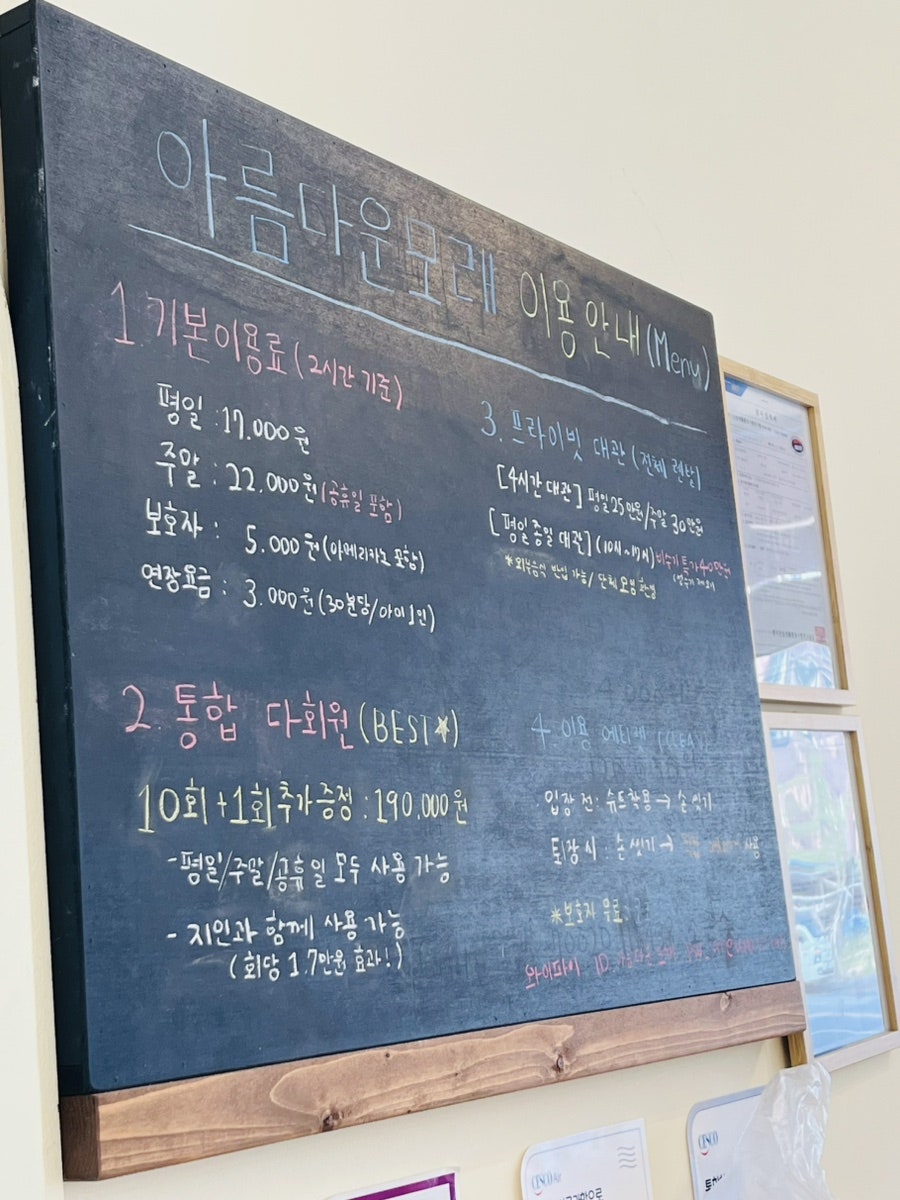 아름다운모래 이용안내 (Menu)
1. 기본이용료 (2시간 기준)
평일 : 17.000원
주말 : 22.000원 (공휴일 포함)
보호자 : 5.000원 (아메리카노 포함)
연장요금 : 3.000원 (30분당/아이1인)
2. 통합 다회원 (BEST★)
10회 +1회 추가증정 : 190.000원
- 평일/주말/공휴일 모두 사용 가능
- 지인과 함께 사용 가능
(회당 1.7만원 효과!)
3. 프라이빗 대관 (전체 렌탈)
[4시간 대관] 평일 25만원/주말 30만원
[평일종일 대관] (10시~17시) 비수기 특가 40만원
*외부음식 반입 가능/ 단체 모임 환영
4. 이용 에티켓
입장 전 : 슈트착용 → 손 씻기
퇴장 시 : 손 씻기 → 사용
*보호자 무료
와이파이 ID
CESCO
CESCO